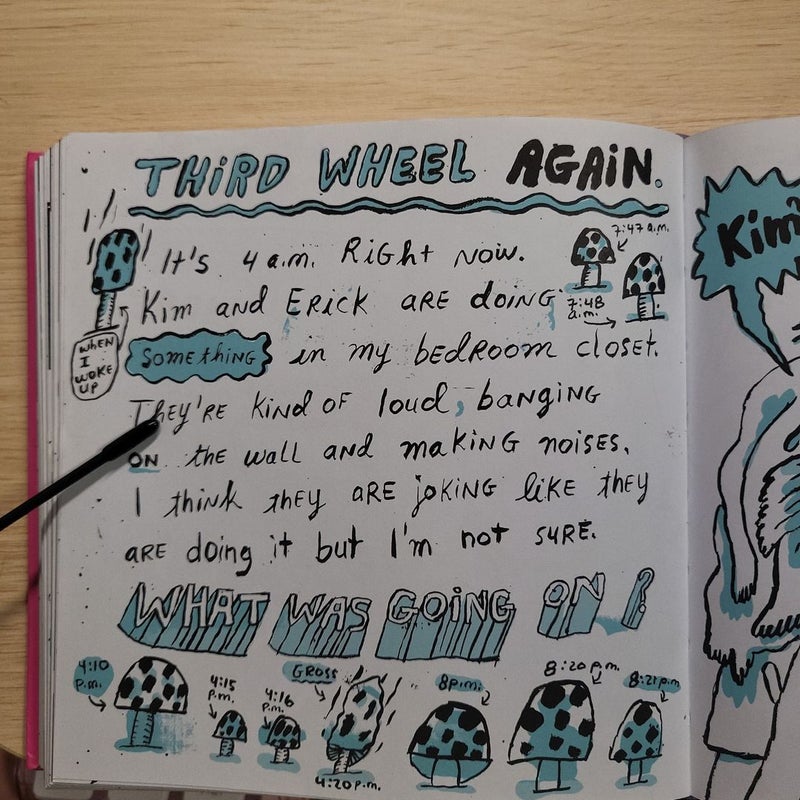 THIRD WHEEL AGAIN.
It's 4 a.m. Right now.
7:47 a.m.
Kim and Erick are doing
7:48 a.m.
Something in my bedroom closet.
WHEN I WOKE UP
They're kind of loud, banging
on the wall and making noises.
I think they are joking like they
are doing it but I'm not sure.
WHAT WAS GOING ON?
4:10 p.m.
4:15 p.m.
4:16 p.m.
GROSS
4:20 p.m.
8 p.m.
8:20 p.m.
8:21 p.m.
Kim